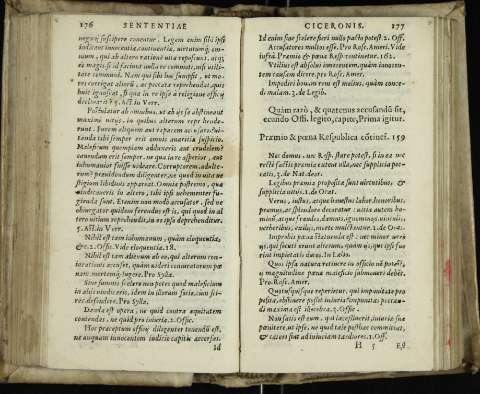 176 SENTENTIAE
negotij suscipere conetur. Legem enim sibi ipsi
indicere innocentiae, continentiae, virtutumq; om-
nium, qui ab altero rationem vitae reposcunt, at-
que magis, si id faciunt nulla re commoti, nisi utili-
tate communi. Nam qui sibi hoc sumpsit, ut mo-
res corrigat
huic ignoscat, si qua in re ipse à religione officij
declinarit? 5. Act. in Verr.
Postulatur ab omnibus, ut ab ijs se abstineant
maximè vitijs, in quibus alterum reprehende-
runt. Furem aliquem aut rapacem accusaris? vi-
tanda tibi semper erit omnis auaritiae suspicio.
Maleficum quempiam adduxeris aut crudelem?
cauendum erit semper, ne qua in re asperior, aut
inhumanior fuisse videare. Corruptorem, adulte-
rum? prouidendum diligenter, ne quod in vita ve-
stigium libidinis appareat. Omnia postremò, quae
vindicaris in altero, tibi ipsi vehementer fu-
gienda sunt. Etenim non modò accusator, sed ne
obiurgator quidem ferendus est is, qui quod in al
tero vitium reprehendit, in eo ipse deprehenditur.
5. Act. in Verr.
Nihil est tam inhumanum, quàm eloquentiā,
&c. 2. Offic. Vide eloquentia. 18.
Nihil est tam alienum ab eo, qui alterum
accuset, quàm videri
mam
Sine summo scelere non potes quod maleficium
in alio vindices, idem in illorum
res defendere. Pro Sylla.
Danda est opera, ne quid contra aequitatem
contendas, ne quid pro iniuria. 2. Offic.
Hoc praeceptum officij diligenter tenendū est,
ne quem innocentem iudicio capitis arcessas.
Id
CICERONIS. 177
Id enim sine scelere fieri nullo pacto potest. 2. Off.
Accusatores multos esse. Pro Rosc. Ameri. Vide
infrà. Praemio & poena Resp. continetur. 162.
Vtilius est absolui innocentem, quàm innocen-
tem causam dicere. pro Rosc. Amer.
Impediri bonam rem est melius, quàm conce-
di malam. 3. de Legib.
Quàm rarò, & quatenus accusandū sit,
ex eundo Offi. legito, capite, Prima igitur.
Praemio & poena Respublica cōtinet. 159
Nec domus, nec Resp. stare potest, si in ea nec
rectè factis praemia extent ulla, nec supplicia pec-
catis. 3. de Nat. deor.
Legibus praemia proposita sunt virtutibus, &
supplicia vitijs. 1. de Orat.
Verus, iustus, atque honestus labor, honoribus,
praemijs, atq; splendore decoratur: vitia autem ho-
minū, atque fraudes, damnis, ignominijs, vinculis,
verberibus, exilijs, morte mulctantur. 1. de Orat.
Improbis poena statuenda est: nec minor verò
ijs, qui secuti erunt alterum, quàm ijs, qui ipsi fue
rint impietatis duces. In Laelio.
Quos ipsa natura retinere in officio nō potest,
ij magnitudine poenae maleficio submoueri debēt.
Pro Rosc. Amer.
Quotusquisque reperietur, qui impunitate pro
posita, abstinere possit iniurijs? impunitas peccan-
di maxima est illecebra. 3. Offic.
Non satis est eum, qui lacessierit, iniuriae suae
poenitere, ut ipse, ne quid tale posthac committat,
& caeteri sint ad iniuriam tardiores. 1. Off.
H 5 Est